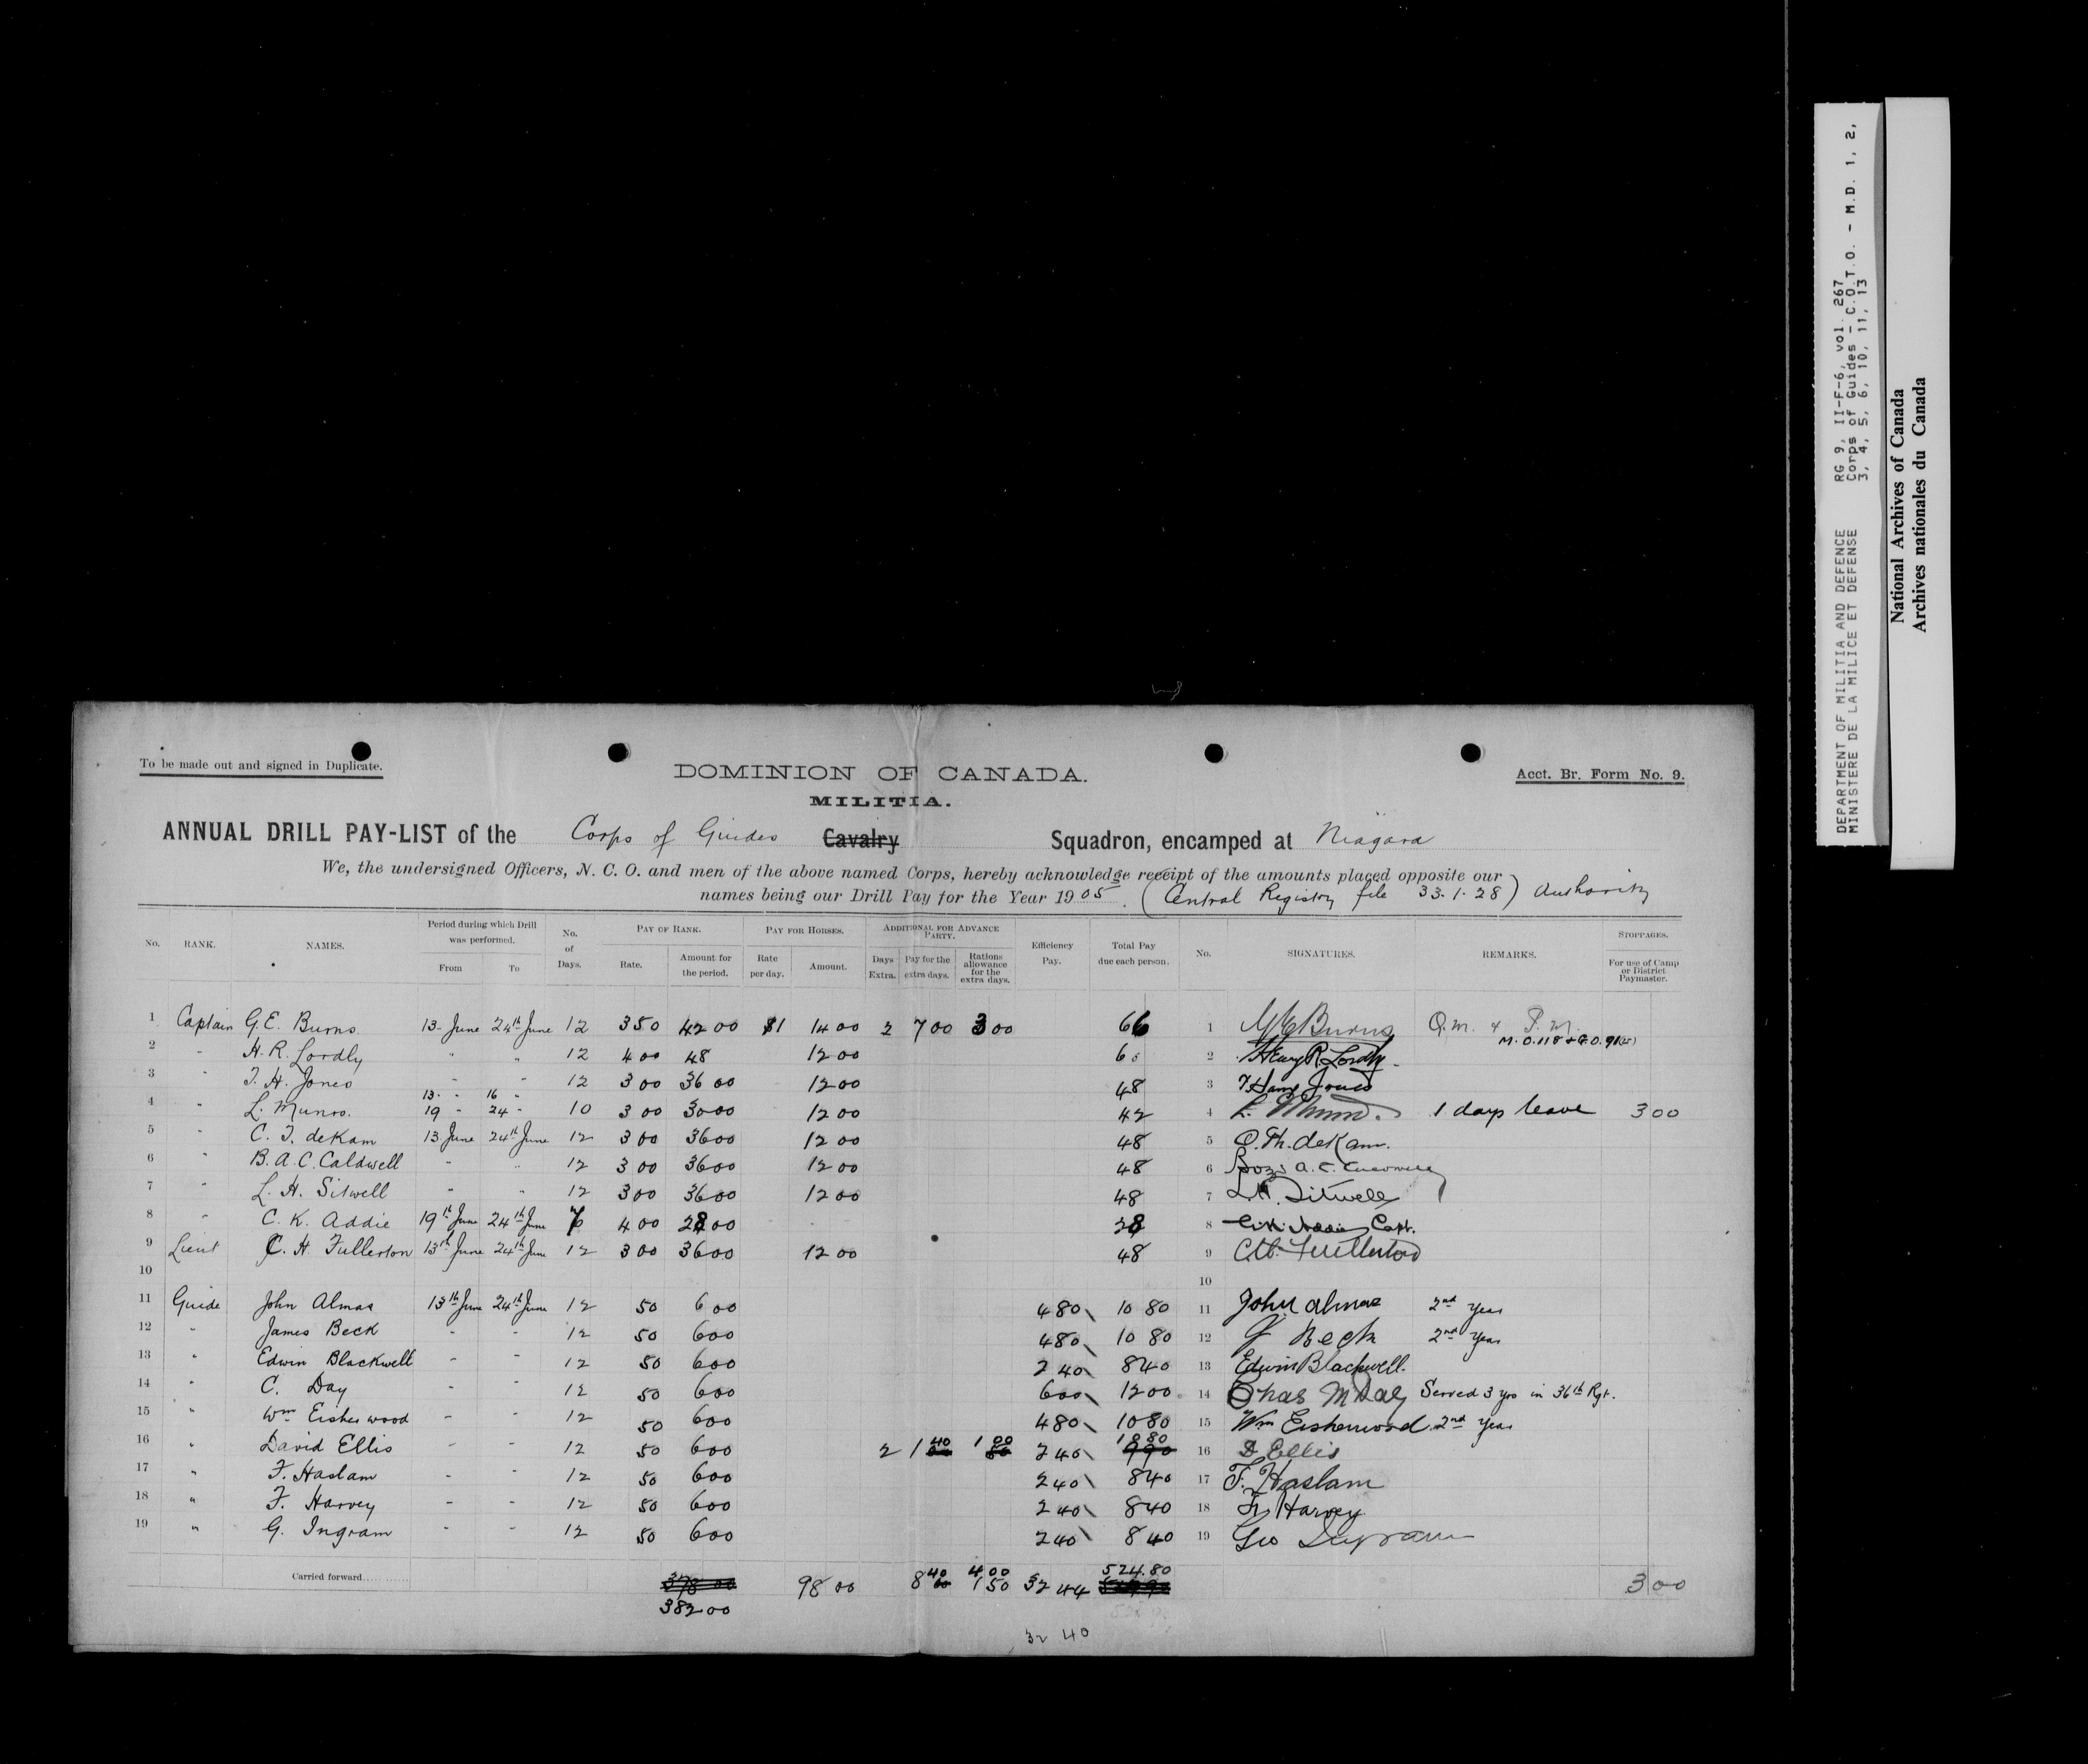 To be made out and signed in Duplicate.
DOMINION OF CANADA.
Acct. Br. Form No. 9.
MILITIA.
ANNUAL DRILL PAY-LIST of the Corps of Guides Cavalry Squadron, encamped at Niagara
We, the undersigned Officers, N. C. O. and men of the above named Corps, hereby acknowledge receipt of the amounts placed opposite our
names being our Drill Pay for the Year 1905. (Central Registry file 33.1.28) Authority
No. RANK. NAMES. Period during which Drill was performed. From To No. of Days. PAY OF RANK. Rate. Amount for the period. PAY FOR HORSES. Rate per day. Amount. ADDITIONAL FOR ADVANCE PARTY. Days Extra. Pay for the extra days. Rations allowance for the extra days. Efficiency Pay. Total Pay due each person. No. SIGNATURES. REMARKS. STOPPAGES. For use of Camp or District Paymaster.
1 Captain G. E. Burns. 13 June 24th June 12 3 50 42 00 $1 14 00 2 7 00 3 00 66 1 G E Burns Q.M. & P.M.
M.O.118 & G.O. 91
2 " H. R. Lordly " " 12 4 00 48 12 00 60 2 Henry R. Lordly
3 " T. H. Jones " " 12 3 00 36 00 12 00 48 3 Jones
4 " L. Munro. 13 " 16 " 19 " 24 " 10 3 00 30 00 12 00 42 4 L. Munro. 1 days leave 3 00
5 " C. T. deKam 13 June 24th June 12 3 00 36 00 12 00 48 5 C. Th. deKam.
6 " B. A. C. Caldwell " " 12 3 00 36 00 12 00 48 6 A. C.
7 " L. H. Sitwell " " 12 3 00 36 00 12 00 48 7 L.H. Sitwell
8 " C. K. Addie 19th June 24th June 7 4 00 28 00 28 8 C.K. Addie Capt.
9 Lieut C. H. Fullerton 13th June 24th June 12 3 00 36 00 12 00 48 9 C.H. Fullerton
10 10
11 Guide John Almas 13th June 24th June 12 50 6 00 4 80 10 80 11 John Almas 2nd Year
12 " James Beck " " 12 50 6 00 4 80 10 80 12 J Beck 2nd Year
13 " Edwin Blackwell " " 12 50 6 00 2 40 8 40 13 Edwin Blackwell.
14 " C. Day " " 12 50 6 00 6 00 12 00 14 Chas M Day Served 3 yrs in 36th Rgt.
15 " Wm Eisherwood " " 12 50 6 00 4 80 10 80 15 Wm Eisherwood 2nd Year
16 " David Ellis " " 12 50 6 00 2 1 40 1 00 2 40 10 80 9 90 16 D Ellis
17 " F. Haslam " " 12 50 6 00 2 40 8 40 17 F. Haslam
18 " F. Harvey " " 12 50 6 00 2 40 8 40 18 Harvey
19 " G. Ingram " " 12 50 6 00 2 40 8 40 19 Geo Ingram
Carried forward 378 00 98 00 8 40 4 00 1 50 32 44 524.80 3 00
382 00
32 40
DEPARTMENT OF MILITIA AND DEFENCE RG 9, II-F-6, vol. 267
MINISTERE DE LA MILICE ET DEFENSE Corps of Guides - C.O.T.O. - M.D. 1, 2,
3, 4, 5, 6, 10, 11, 13
National Archives of Canada
Archives nationales du Canada